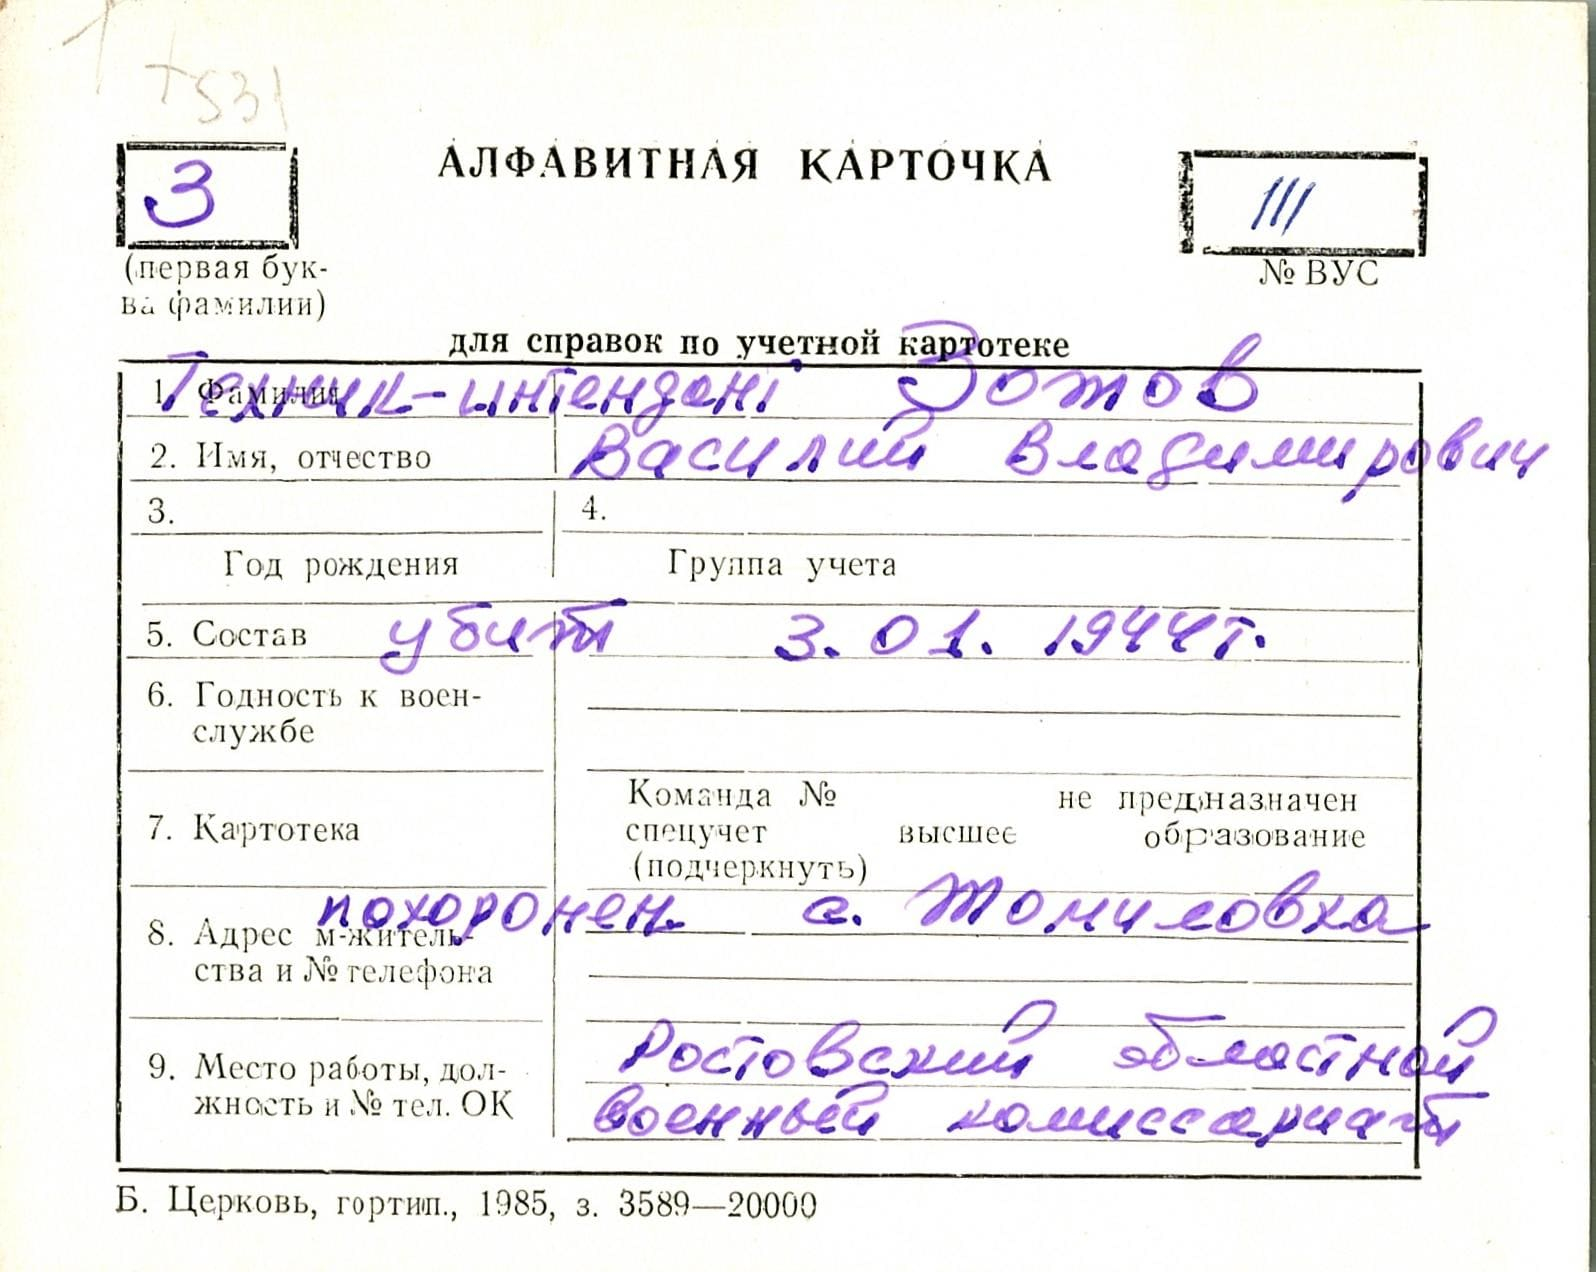 +531
АЛФАВИТНАЯ КАРТОЧКА
З
III
(первая бук-
ва фамилии)
№ ВУС
для справок по учетной картотеке
1. Фамилия Техник-интендант Зотов
2. Имя, отчество Василий Владимирович
3. 4.
Год рождения Группа учета
5. Состав убит 3.01.1944г.
6. Годность к воен-
службе
Команда № не предназначен
7. Картотека спецучет высшее образование
(подчеркнуть)
похоронен. с. Томиловка
8. Адрес м-житель-
ства и № телефона
Ростовский областной
9. Место работы, дол-
жность и № тел. ОК военный комиссариат
Б. Церковь, гортип., 1985, з. 3589—20000